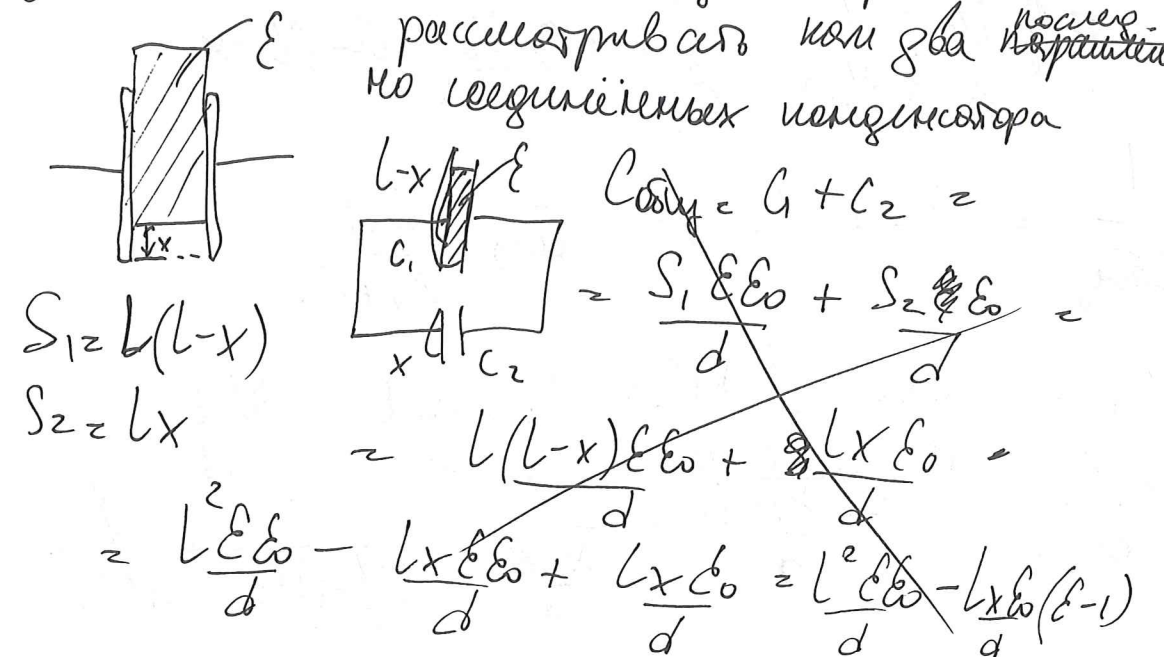 рассматривать как два послед.
но соединённых конденсатора
ε
x
l-x
ε
C₁
x
C₂
S₁ = l(l-x)
S₂ = lx
Cобщ = C₁ + C₂ =
= S₁εε₀/d + S₂ε₀/d =
= l(l-x)εε₀/d + lxε₀/d =
= l²εε₀/d - lxεε₀/d + lxε₀/d = l²εε₀/d - lxε₀/d(ε-1)